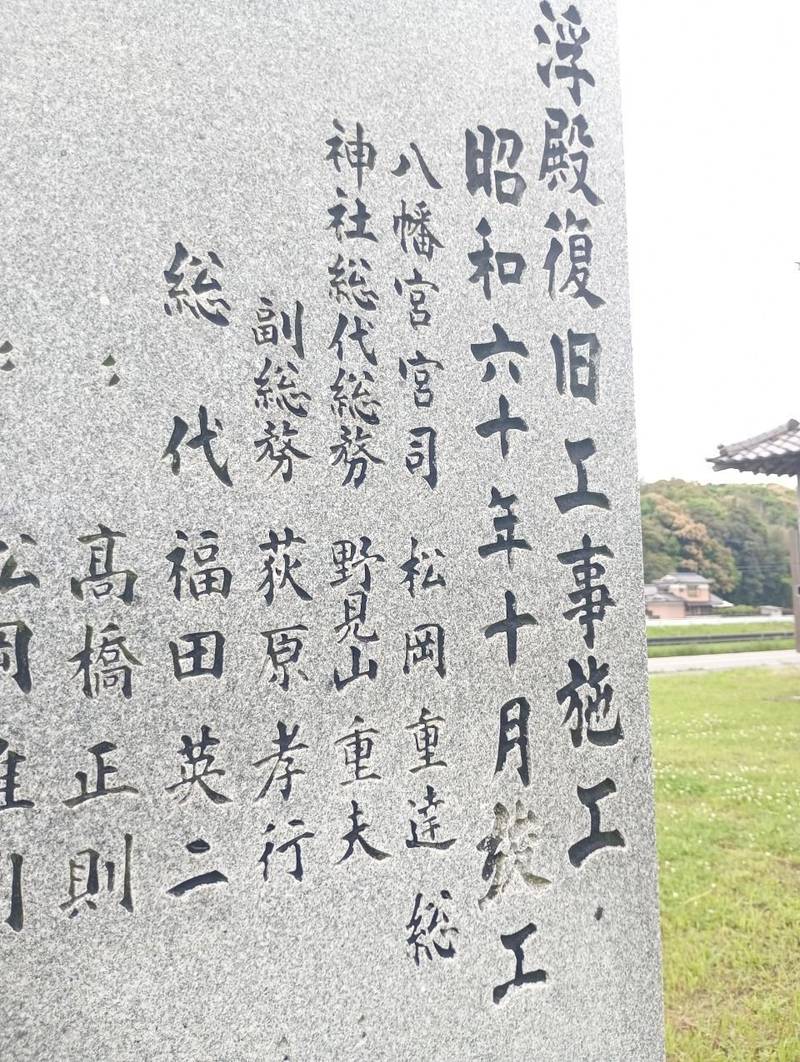 浮殿復旧工事施工
昭和六十年十月 工
八幡宮宮司 松岡重達 総
神社総代総務 野見山重夫
副総務 荻原孝行
総代 福田英二
〃 髙橋正則